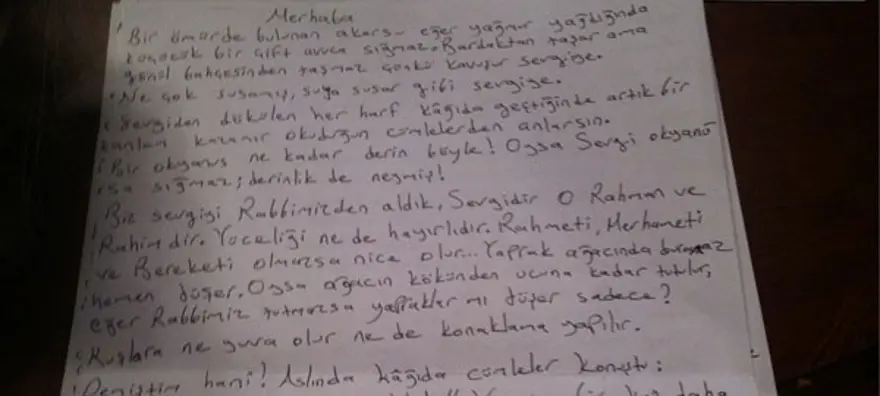 Merhaba
Bir ömürde bulunan akarsu eğer yağmur yağdığında
koşacak bir çift avuca sığmaz. Bardaktan taşar ama
gönül bahçesinden taşmaz çünkü kavuşur sevgiye.
Ne çok susamış, suya susar gibi sevgiye.
Sevgiden dökülen her harf kâğıda geçtiğinde artık bir
anlam kazanır okuduğun cümlelerden anlarsın.
Bir okyanus ne kadar derin böyle! Oysa Sevgi okyanu
sa sığmaz; derinlik de neymiş!
Biz sevgiyi Rabbimizden aldık, Sevgidir O Rahman ve
Rahimdir. Yüceliği ne de hayırlıdır. Rahmeti, Merhameti
ve Bereketi olmazsa nice olur... Yaprak ağacında durmaz
hemen düşer. Oysa ağacın kökünden ucuna kadar tutulur,
eğer Rabbimiz tutmazsa yapraklar mı düşer sadece?
Kuşlara ne yuva olur ne de konaklama yapılır.
Demiştim hani! Aslında kâğıda cümleler konuştu:
bir kez daha